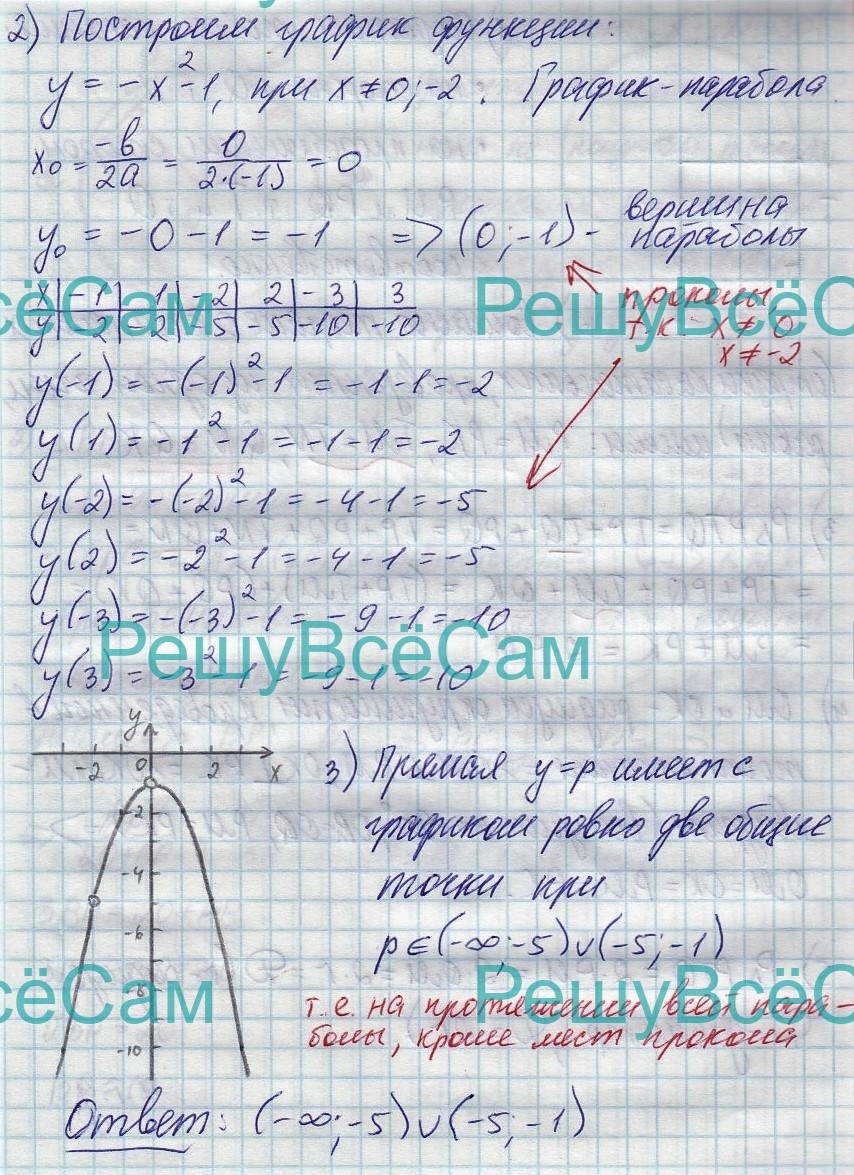 2) Построим график функции:
y = -x²-1, при x≠0;-2. График-парабола
x₀ = -b/2a = 0/2·(-1) = 0
y₀ = -0-1 = -1 => (0;-1) - вершина параболы
x | -1 | 1 | -2 | 2 | -3 | 3
y | -2 | -2 | -5 | -5 | -10 | -10
проколы
т.к. x≠0
x≠-2
y(-1) = -(-1)²-1 = -1-1=-2
y(1) = -1²-1 = -1-1=-2
y(-2) = -(-2)²-1 = -4-1 = -5
y(2) = -2²-1 = -4-1 = -5
y(-3) = -(-3)²-1 = -9-1=-10
y(3) = -3²-1 = -9-1 = -10
y
-2 0 2 x
-2
-4
-6
-8
-10
3) Прямая y=p имеет с
графиком ровно две общие
точки при
p∈(-∞;-5)∪(-5;-1)
т.е. на протяжении всей пара-
болы, кроме мест прокола
Ответ: (-∞;-5)∪(-5;-1)
ёСам
РешуВсёС
РешуВсёСам
ВсёСам
РешуВсёС